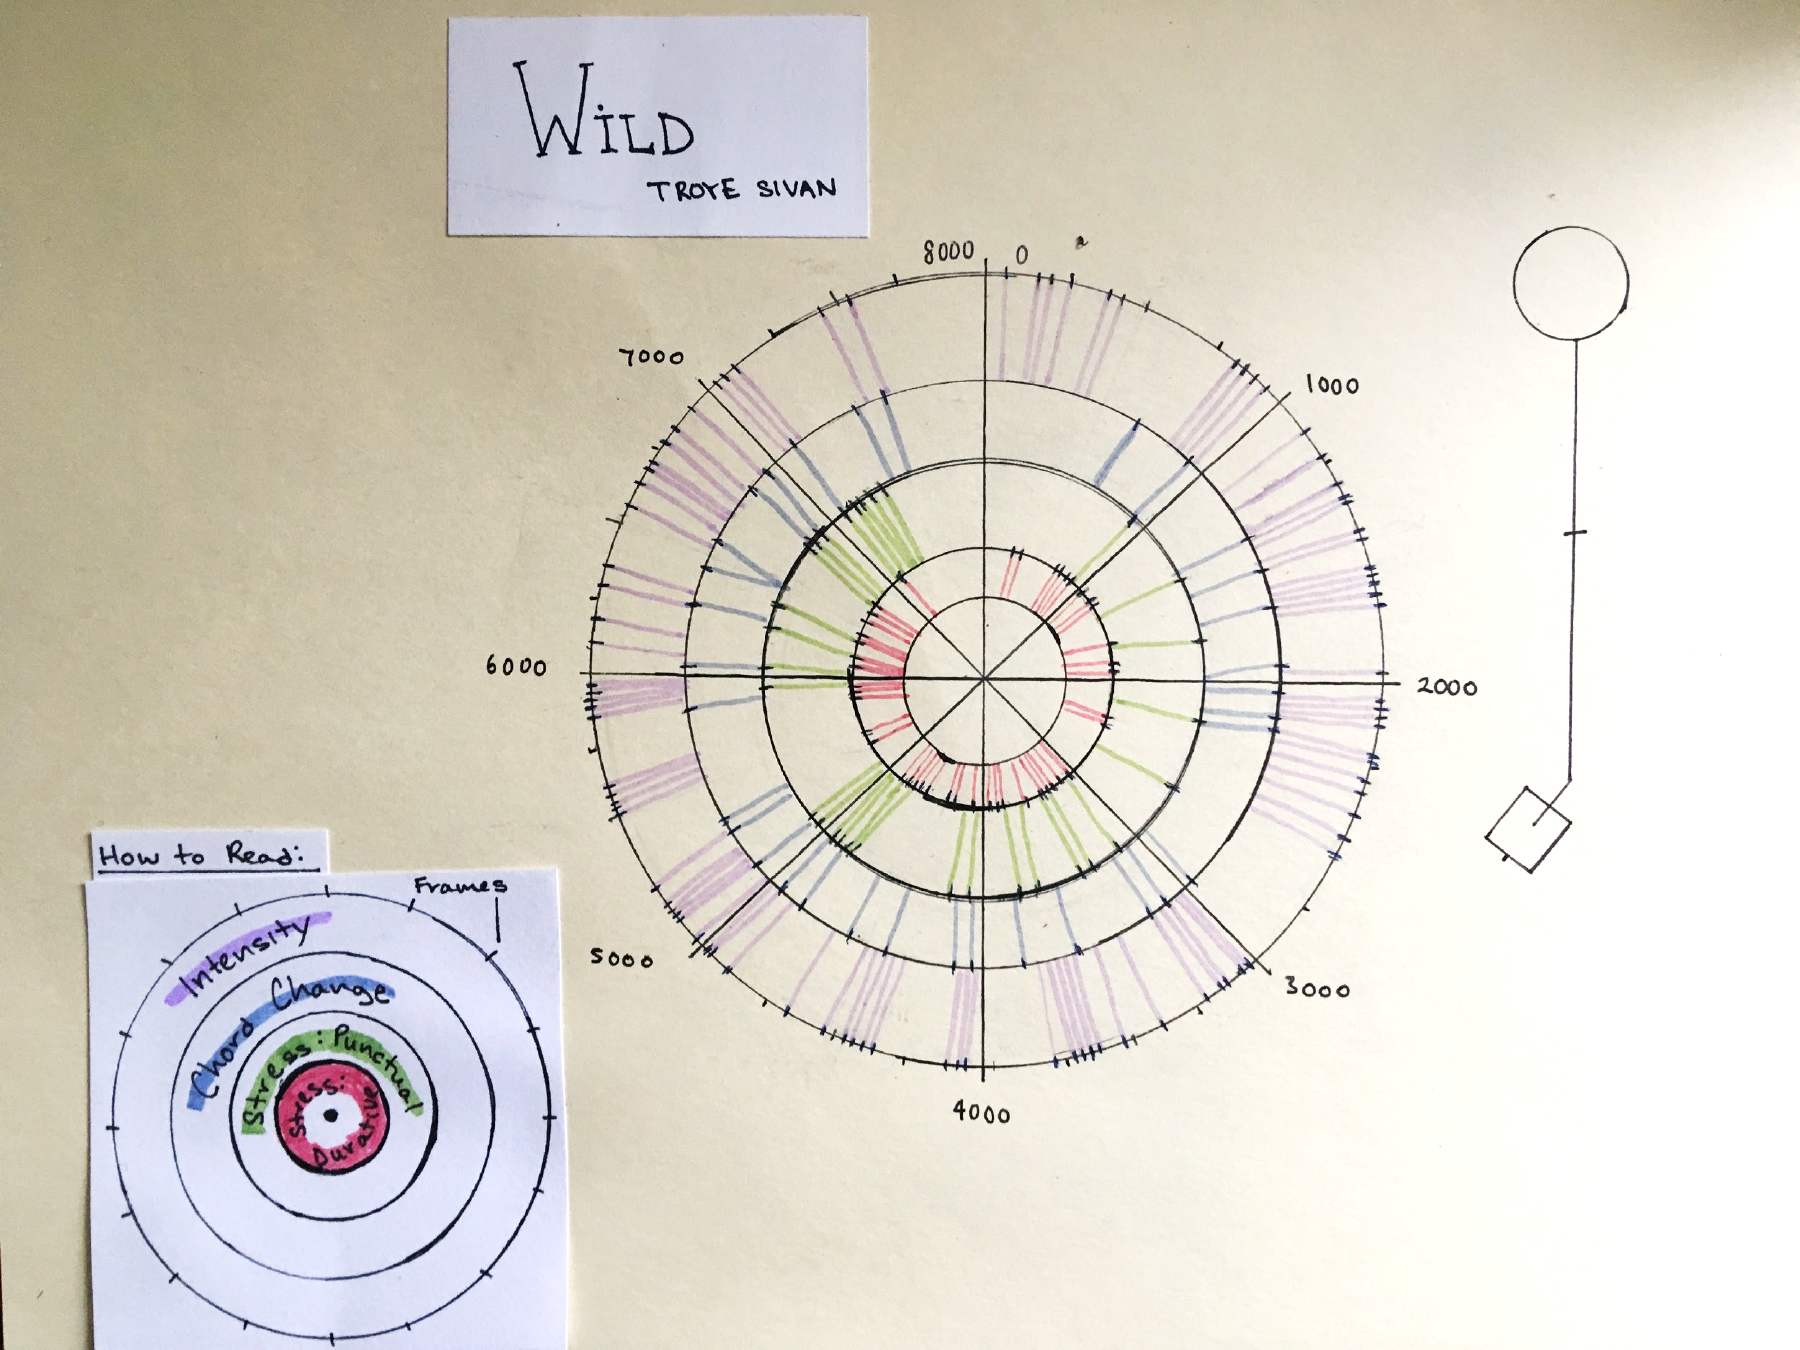 WiLD
TROYE SIVAN
8000
0
1000
2000
3000
4000
5000
6000
7000
How to Read:
Frames
Intensity
Chord Change
Stress: Punctual
Stress: Durative